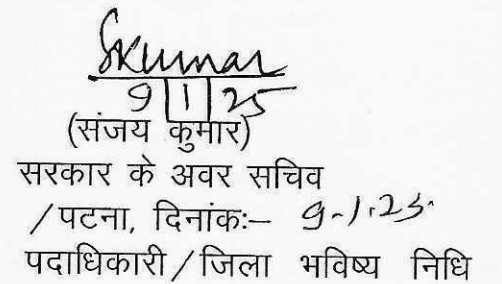 Skumar
9|1|25
(संजय कुमार)
सरकार के अवर सचिव
/पटना, दिनांकः– 9-1-25
पदाधिकारी/जिला भविष्य निधि